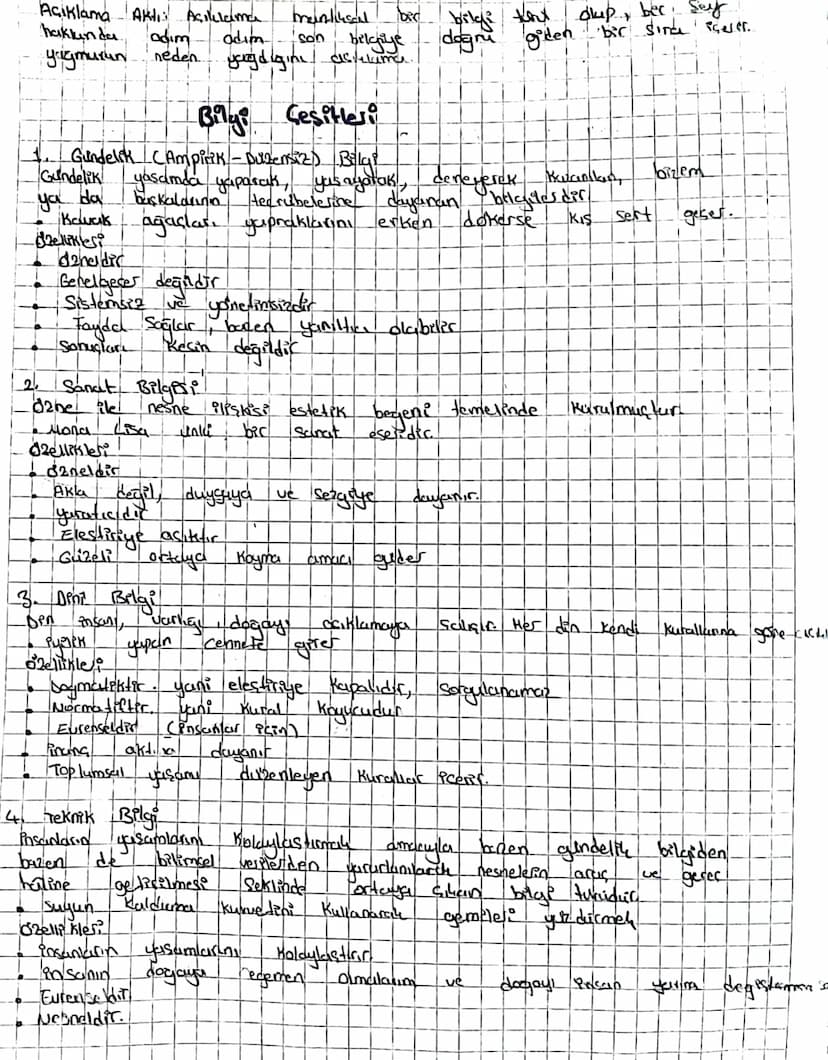 Açıklama Aktı: Açıklama mantıksal bir bilgi türü olup, bir şey
hakkında adım adım son bilgiye doğru giden bir sıra içerir.
yağmurun neden yağdığını açıklama
Bilgi Çeşitleri
1. Gündelik (Ampirik - Düzensiz) Bilgi
Gündelik yaşamda yaparak, yaşayarak, deneyerek kazanılan, bizim
ya da başkalarının tecrübelerine dayanan bilgilerdir.
• Kavak ağaçları yapraklarını erken dökerse kış sert geçer.
Özellikleri
• Özneldir
• Genelgeçer değildir
• Sistemsiz ve yöntemsizdir
• Fayda sağlar, bazen yanıltıcı olabilir
• Sonuçları kesin değildir
2. Sanat Bilgisi
Özne ile nesne ilişkisi estetik beğeni temelinde kurulmuştur.
• Mona Lisa ünlü bir sanat eseridir.
Özellikleri
• Özneldir
• Akla değil, duyguya ve sezgiye dayanır.
• Yaratıcıdır
• Eleştiriye açıktır
• Güzeli ortaya koyma amacı güder
3. Dini Bilgi
Din insanı, varlığı, doğayı açıklamaya çalışır. Her din kendi kurallarına göre
• İyilik yapan cennete girer
Özellikleri
• Dogmatiktir. yani eleştiriye kapalıdır, sorgulanamaz
• Normatiftir. yani kural koyucudur
• Evrenseldir (insanlar için)
• İnanç aktına dayanır
• Toplumsal yaşamı düzenleyen kurallar içerir.
4. Teknik Bilgi
İnsanların yaşamlarını kolaylaştırmak amacıyla bazen gündelik bilgiden
bazen de bilimsel verilerden yararlanılarak nesnelerin araç ve gereç
haline getirilmesi şeklinde ortaya çıkan bilgi türüdür.
• Suyun kaldırma kuvvetini kullanarak gemileri yüzdürmek
Özellikleri
• İnsanların yaşamlarını kolaylaştırır
• İnsanın doğaya egemen olmalarını ve doğayı insan yararına
• Evrenseldir
• Nesneldir.